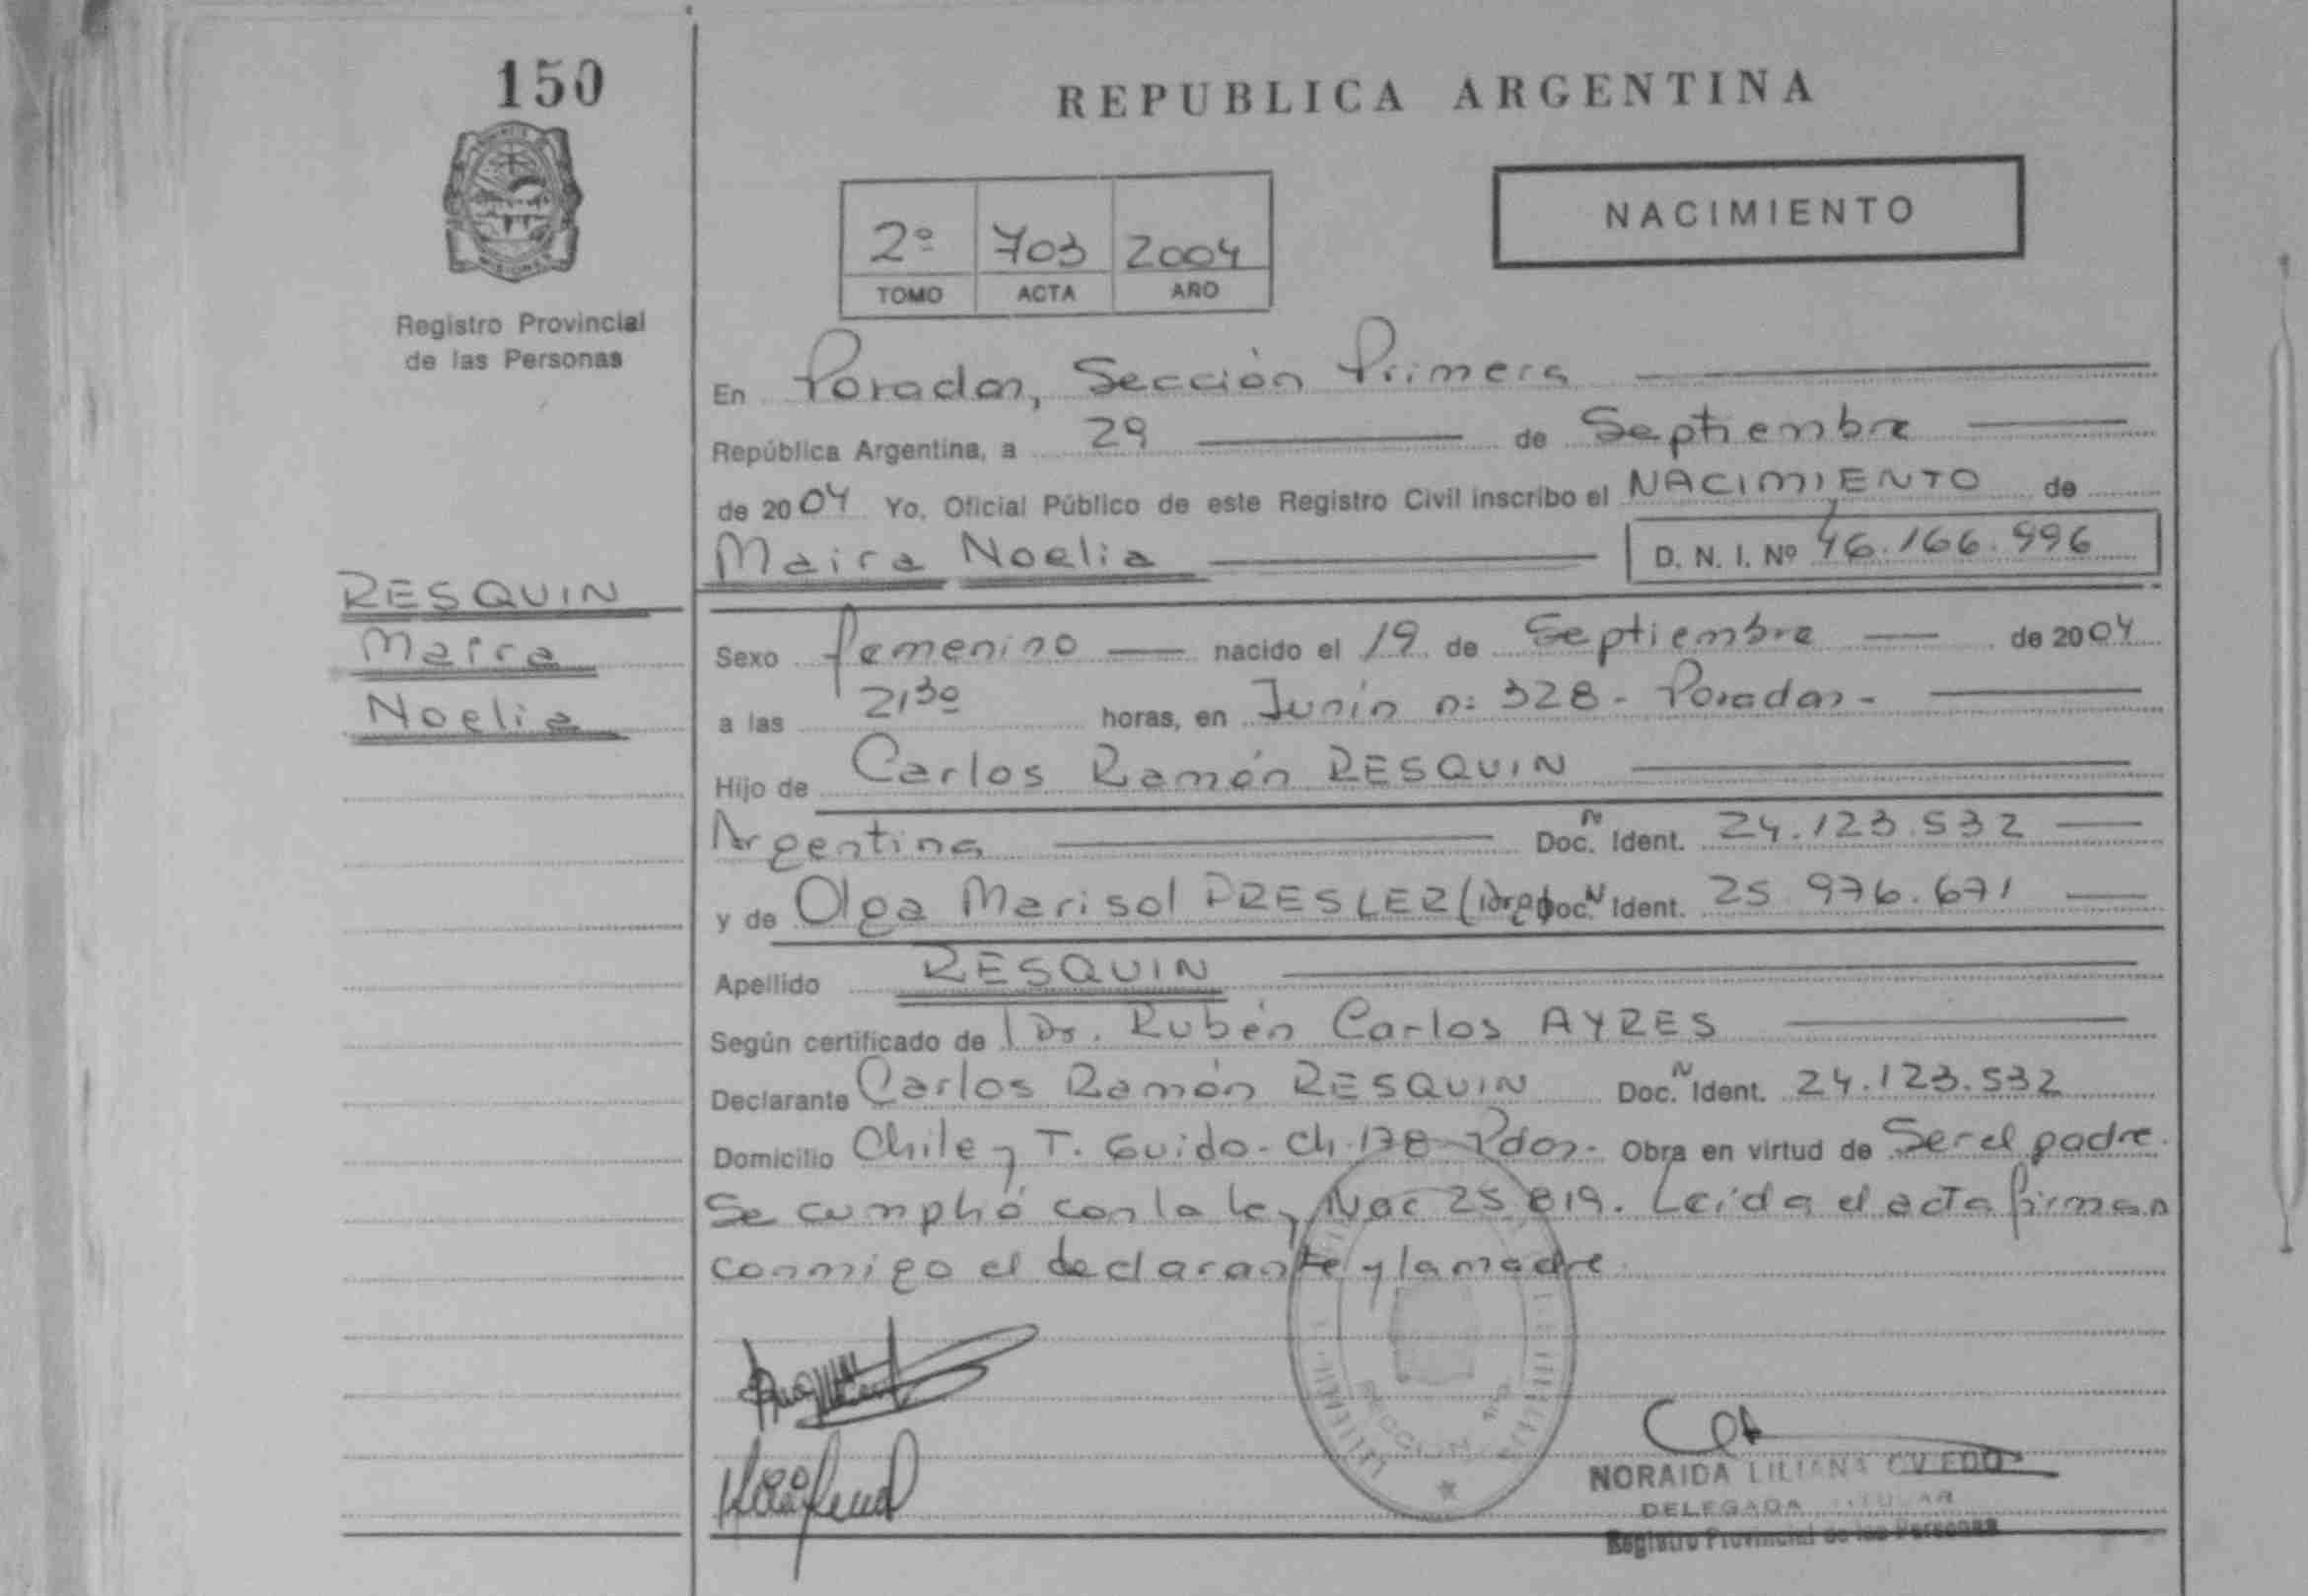 150
REPUBLICA ARGENTINA
NACIMIENTO
2º 703 2004
TOMO ACTA AÑO
Registro Provincial
de las Personas
En Posadas, Sección Primera
República Argentina, a 29 de Septiembre
de 2004 Yo, Oficial Público de este Registro Civil inscribo el NACIMIENTO de
Maira Noelia D. N. I. Nº 46.166.996
RESQUIN
Maira
Noelia
Sexo femenino nacido el 19 de Septiembre de 2004
a las 21³⁰ horas, en Junín n: 328 - Posadas -
Hijo de Carlos Ramón RESQUIN
Argentina Doc. N Ident. 24.123.532
y de Olga Marisol PRESLER (Arg) Doc. N Ident. 25.976.671
Apellido RESQUIN
Según certificado de Dr. Rubén Carlos AYRES
Declarante Carlos Ramón RESQUIN Doc. N Ident. 24.123.532
Domicilio Chile y T. Guido - Ch. 178 - Pdas - Obra en virtud de Ser el padre.
Se cumplió con la ley Nac 25.819. Leída el acta firman
conmigo el declarante y la madre.
NORAIDA LILIANA OVIEDO
DELEGADA TITULAR
Registro Provincial de las Personas